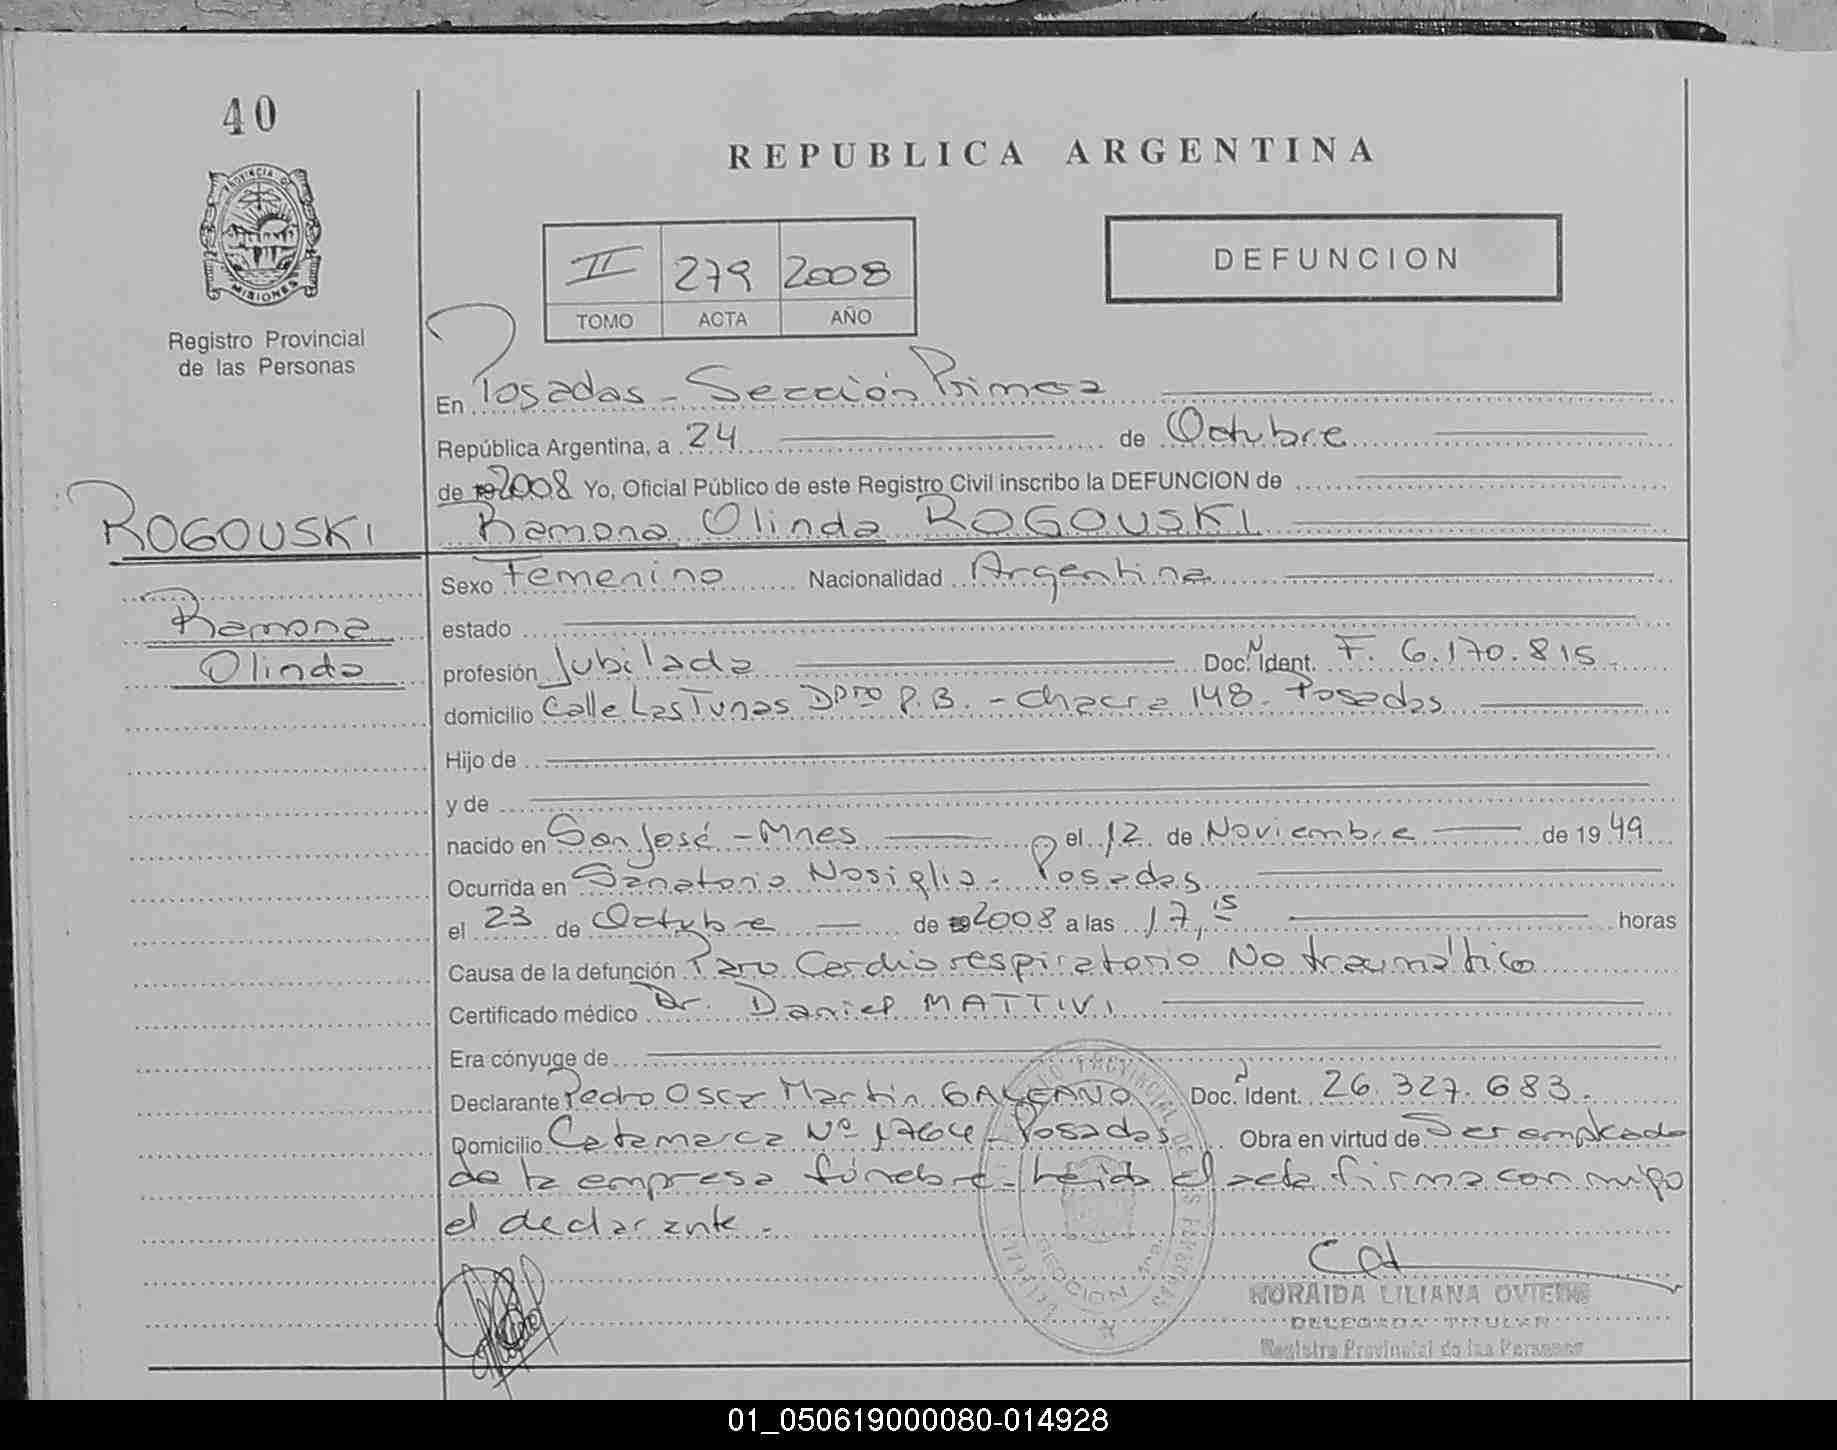 40
PROVINCIA DE
MISIONES
Registro Provincial
de las Personas
REPUBLICA ARGENTINA
II 279 2008
TOMO ACTA AÑO
DEFUNCION
En Posadas - Sección Primera
República Argentina, a 24 de Octubre
de 2008 Yo, Oficial Público de este Registro Civil inscribo la DEFUNCION de
ROGOUSKI
Ramona Olinda ROGOUSKI
Ramona
Olinda
Sexo Femenino Nacionalidad Argentina
estado
profesión Jubilada Doc. N Ident. F. 6.170.815.
domicilio Calle Las Tunas Dpto P.B. - Chacra 148 - Posadas
Hijo de
y de
nacido en San José - Mnes el 12 de Noviembre de 1949
Ocurrida en Sanatorio Nosiglia - Posadas
el 23 de Octubre de 2008 a las 17,15 horas
Causa de la defunción Paro Cardiorespiratorio No traumático
Certificado médico Dr. Daniel MATTIVI
Era cónyuge de
Declarante Pedro Oscar Martin GALEANO Doc. Ident. 26.327.683.
Domicilio Catamarca Nº 1764 - Posadas Obra en virtud de Ser empleado
de la empresa fúnebre - Leida el acta firma conmigo
el declarante.
SECCION 1ra
NORAIDA LILIANA OVIEDO
DELEGADA TITULAR
Registro Provincial de las Personas
01_050619000080-014928